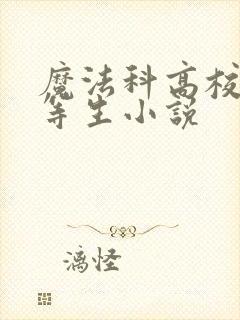 魔法科高校
等生小説
漓怪